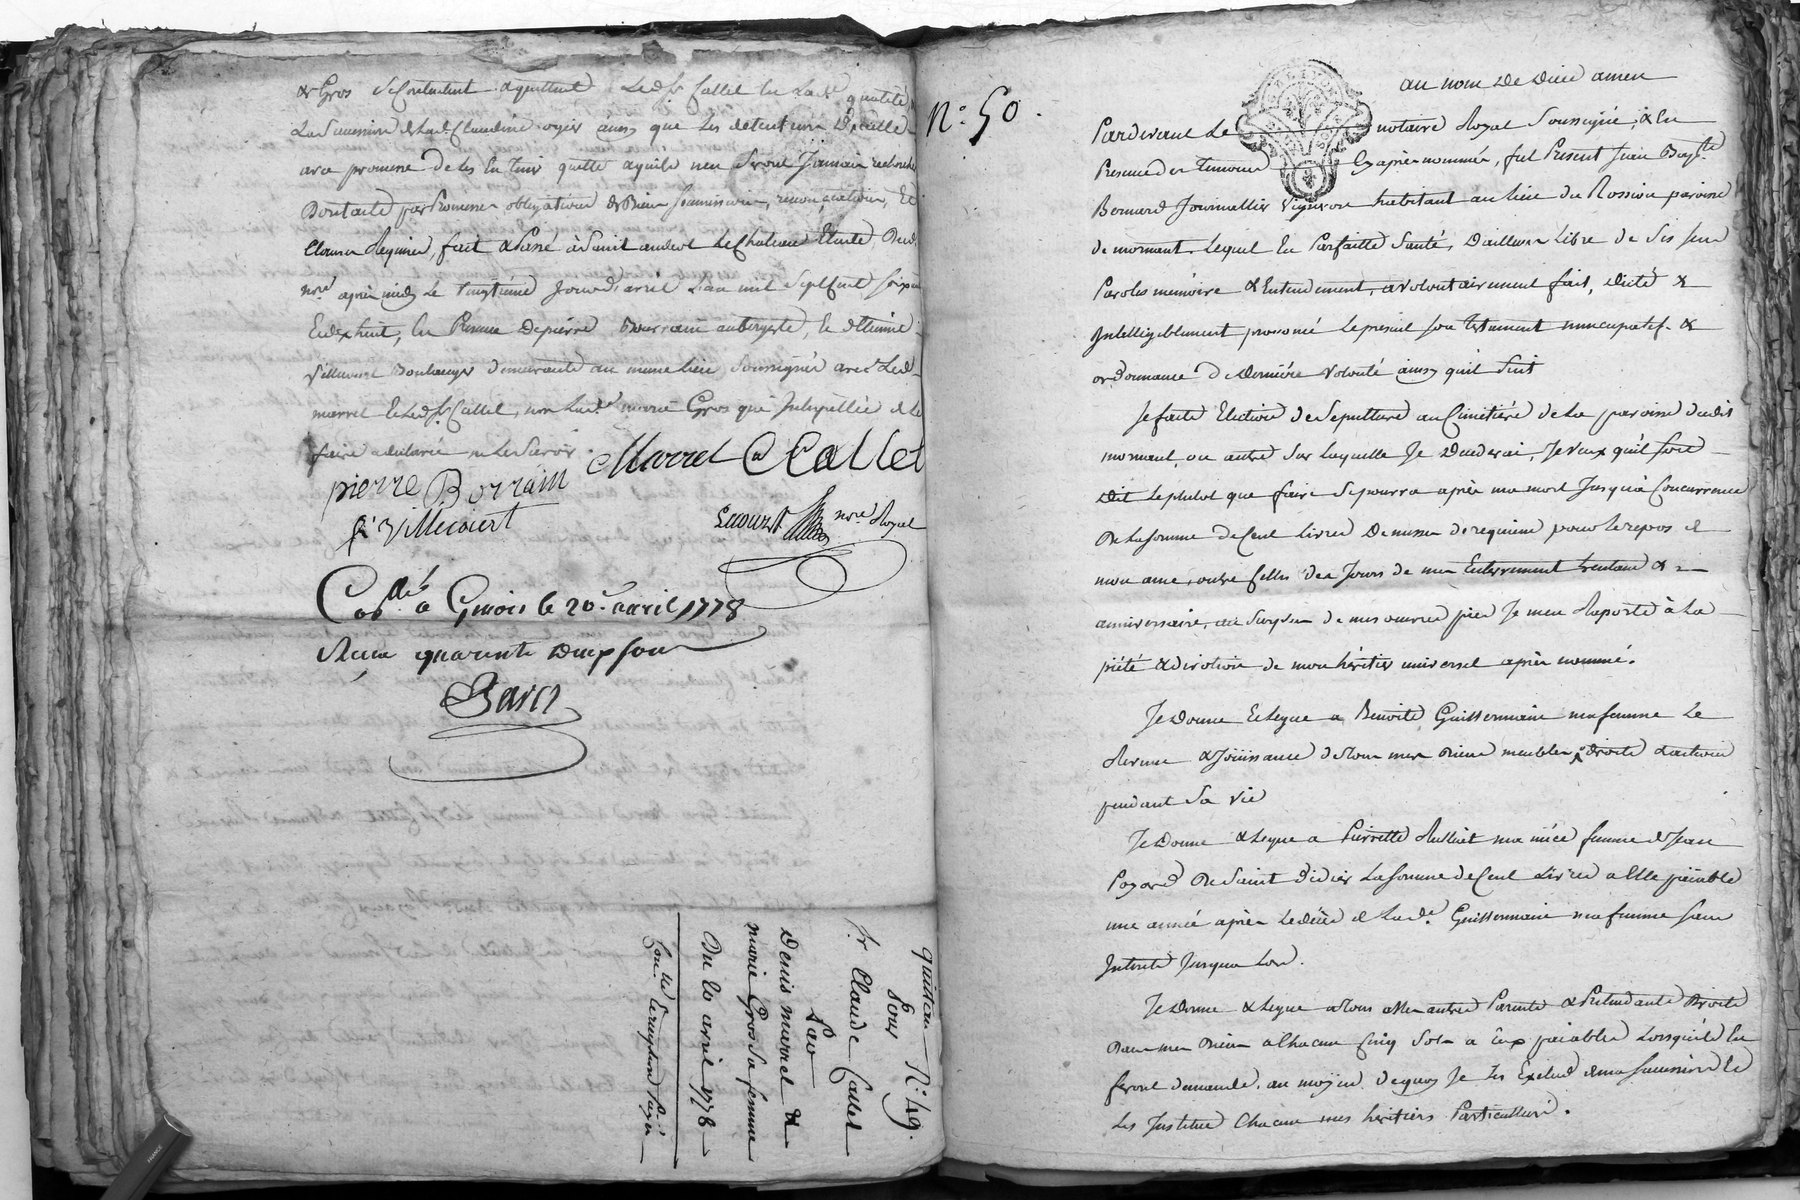 & Gros se contentent aquittent led. sr Callet en lad. qualité
La Succession de lad. Claudine ogier ainsy que les detenteurs d'icelle
avec promesse de les en tenir quitte a quils n'en seront Jamais recherchés
Dont acte par Promesses obligations de Biens soumissions, renonciations, Et
Clauses Requises, fait & Passé à Saint andeol le Chateau Etude Dud.
nre après midy Le vingtieme Jour d'avril L'an mil Sept Cent Soixante
Et dix huit, En Presence De pierre Bourrain aubergiste, & etienne
Villecourt Boulanger demeurants au meme lieu Soussignés avec Led.
marrel & Led. sr Callet, non Lad. marie Gros qui Interpellée de le
faire a declaré ne le Savoir.
Marrel C Callet
pierre Borrain
E Villecourt
nre Royal
Collé a Givors le 20e avril 1778
Recu quarente Deux sous
quittance N.º 49.
Pour
Sr Claude Callet
Par
Denis marrel &
marie Gros Sa femme
Du 20 avril 1778
N.º 50.
au nom De Dieu amen
Pardevant Le notaire Royal Soussigné, & En
Presence des temoins Cy après nommés, fut Present Jean Bapte
Bernard Journallier vigneron habitant au lieu du Rossion paroisse
de mornant. Lequel En Parfaitte Santé, D'ailleurs Libre de Ses sens
Paroles mémoire & Entendement, a volontairement fait, dicté &
Intelligiblement prononcé le present son testament nuncupatif &
ordonnance de Derniére volonté ainsy qu'il Suit
Je faits Election de Sepulture au Cimetiére de La paroisse dudit
mornant, ou autre Sur laquelle Je Decederai, Je veux qu'il soit
dit Le plutot que faire Se pourra après ma mort Jusqu'à Concurrence
De La Somme de Cent Livres De messes de requiem pour le repos de
mon ame, outre celles des Jours de mes Enterrement trentain &
anniversaire, au Surplus de mes œuvres pies Je m'en Raporte à La
piété & devotion de mon héritier universel après nommé.
Je Donne & Legue a Benoite Guillermain ma femme Le
Revenu & Joüissance de tous mes Biens meubles, droits d'actions
pendant Sa vie
Je Donne & Legue a Pierrette Rulliet ma niéce femme de Jean
Poyard De Saint Didier La Somme de Cent Livres a Elle païable
une année après Le décès de Lad. Guillermain ma femme Sans
Interets Jusqu'a Lors.
Je Donne & Legue a tous Mes autres Parents & Pretendants Droits
Dans mes Biens a Chacun Cinq Sols a Eux païables Lorsqu'ils En
feront demande, au moïen de quoy Je Les Exclud de ma Succession &
Les Institue Chacun mes heritiers Particuliers.